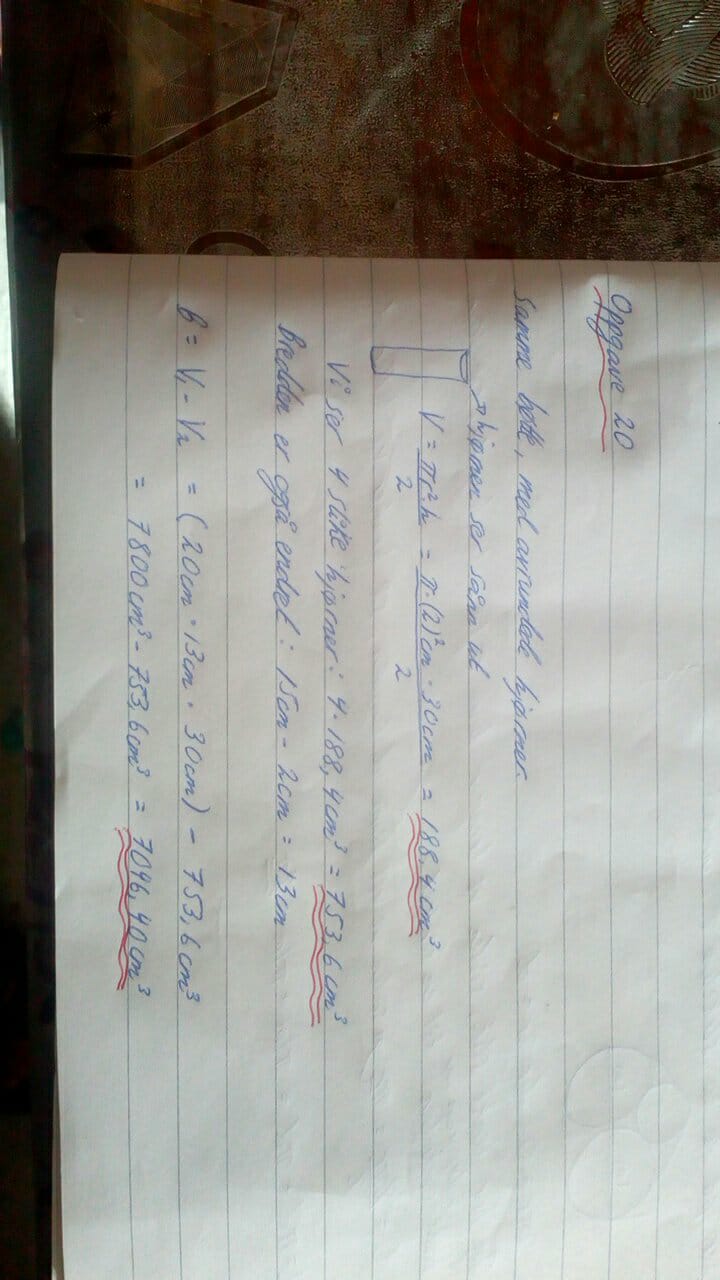 Oppgave 20
Samme boks, med avrundede hjørner.
→ hjørnen ser sånn ut
V = πr²·h / 2 = π·(2)²cm · 30cm / 2 = 188,4 cm³
Vi ser 4 slike hjørner: 4·188,4cm³ = 753,6 cm³
Bredden er også endret: 15cm - 2cm = 13cm
B = V₁ - V₂ = (20cm · 13cm · 30cm) - 753,6 cm³
= 7800cm³ - 753,6cm³ = 7046,40cm³